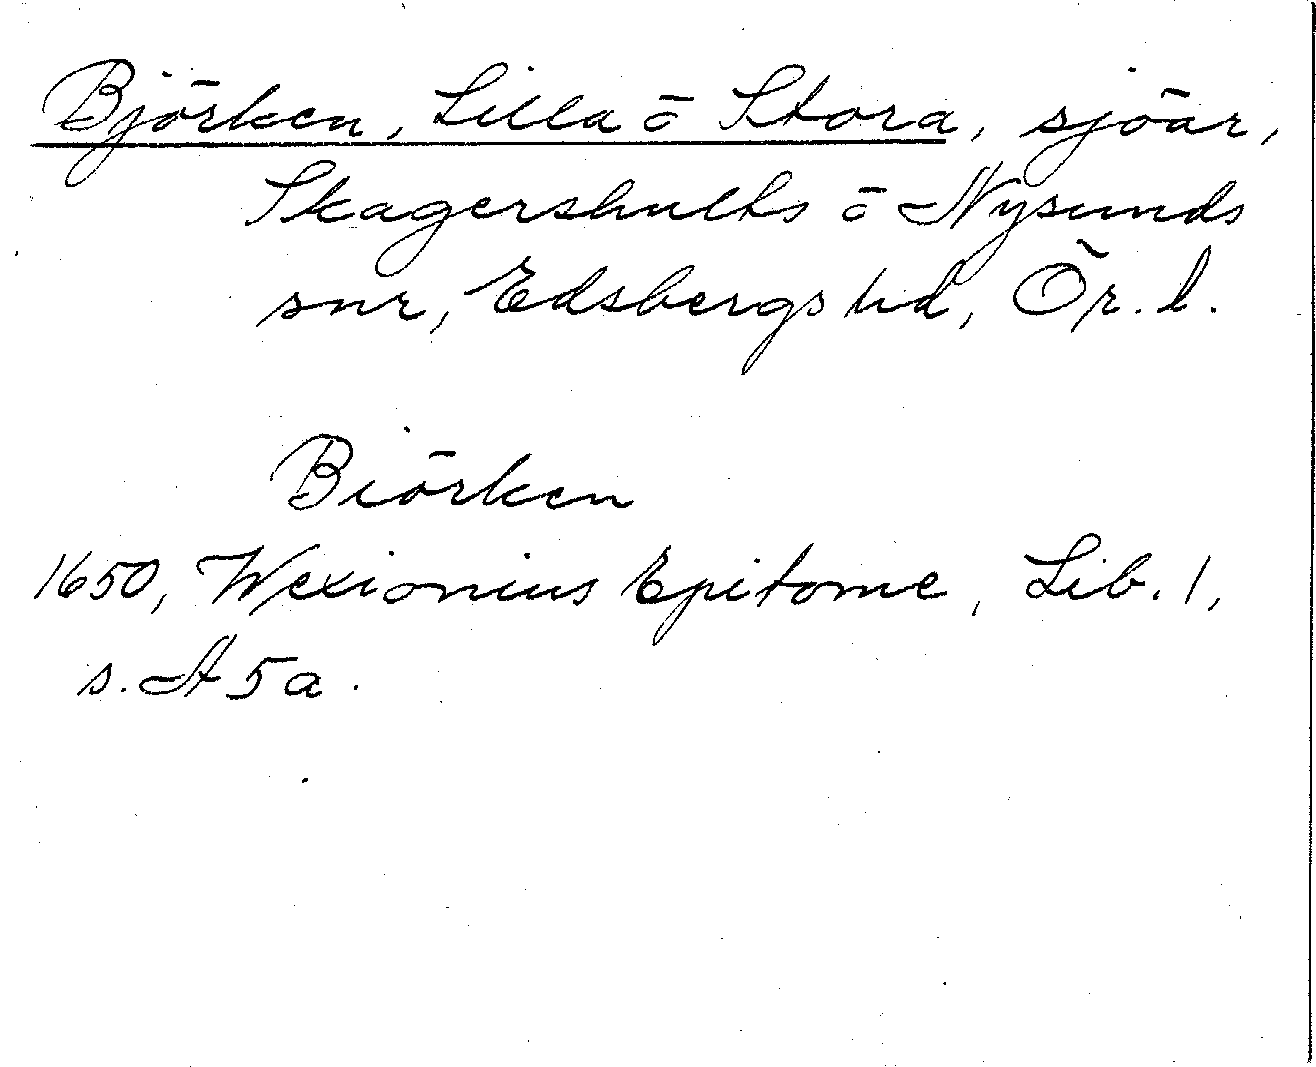 Björken, Lilla ō Stora, sjöar,
Skagershults ō Nysunds
snr, Edsbergs hd, Ör. l.
Biörken
1650, Wexionius Epitome, Lib. 1,
s. A 5 a.